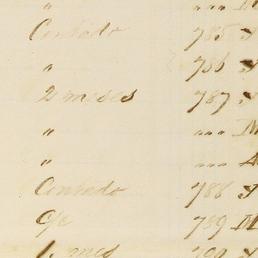 " "" 
Contado 785
" 786
2 meses 787
" """
" """
Contado 788
C/c 789